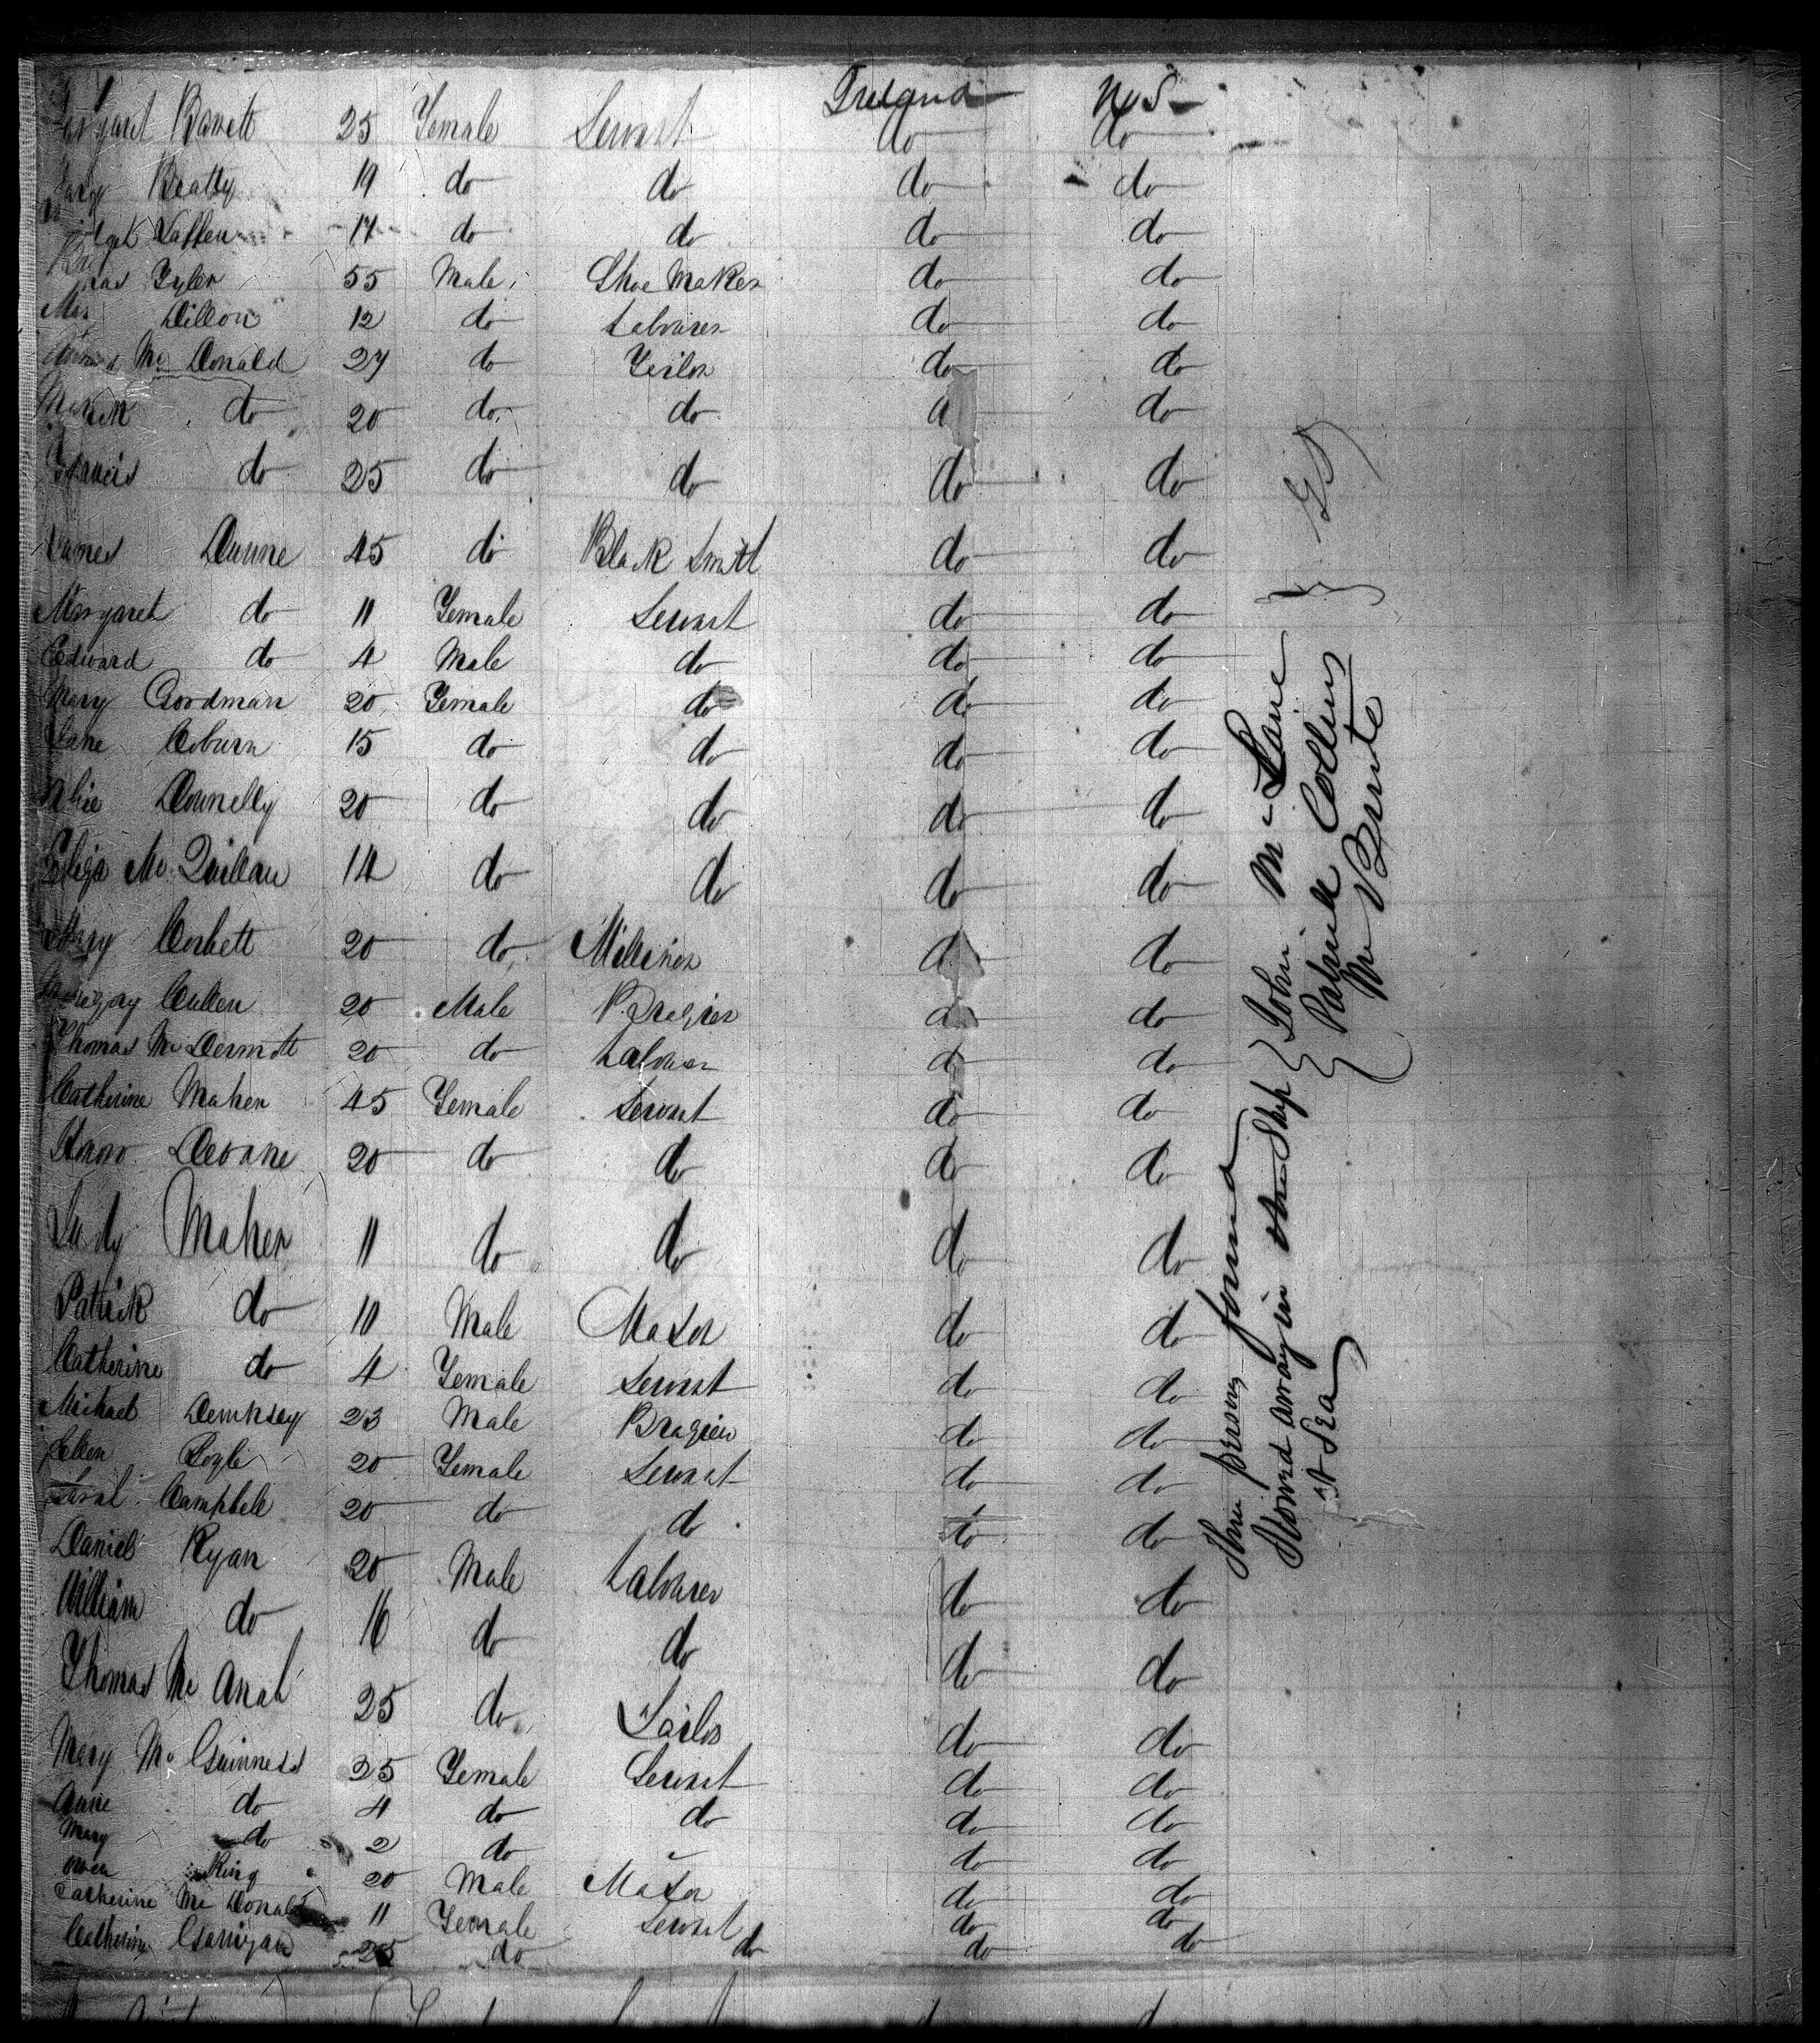 Ireland U S
Margaret Barrett 25 Female Servant do do
Mary Beatty 19 do do do do
do do do do
55 Male Shoe Maker do do
Dillon 12 do Labourer do do
Mc Donald 27 do do do
do 20 do do do
Francis do 25 do do do do
James Dunne 45 do Black Smith do do
Margaret do 11 Female Servant do do
Edward do 4 Male do do do
Mary Goodman 20 Female do do do
Jane Coburn 15 do do do do
Donnelly 20 do do do do
Eliza Mc Quillan 14 do do do do
Mary Corbett 20 do Milliner do do
Cullen 20 Male Brazier do do
Thomas Mc Dermott 20 do Labourer do do
Catherine Maher 45 Female Servant do do
Devane 20 do do do do
Judy Maher 11 do do do do
Patrick do 10 Male Mason do do
Catherine do 4 Female Servant do do
Michael Dempsey 23 Male Brazier do do
Ellen 20 Female Servant do do
Campbell 20 do do do do
Daniel Ryan 20 Male Labourer do do
William do 16 do do do do
Thomas Mc 25 do do do
Mary Mc Guinness 25 Female Servant do do
Anne do 4 do do do do
Mary do 2 do do do
Owen King 20 Male Mason do do
Catherine Mc Donald 11 Female Servant do do
Catherine 25 do do do do
Three persons found
Stowed away in the Ship
at Sea
John Mc
Patrick Collins